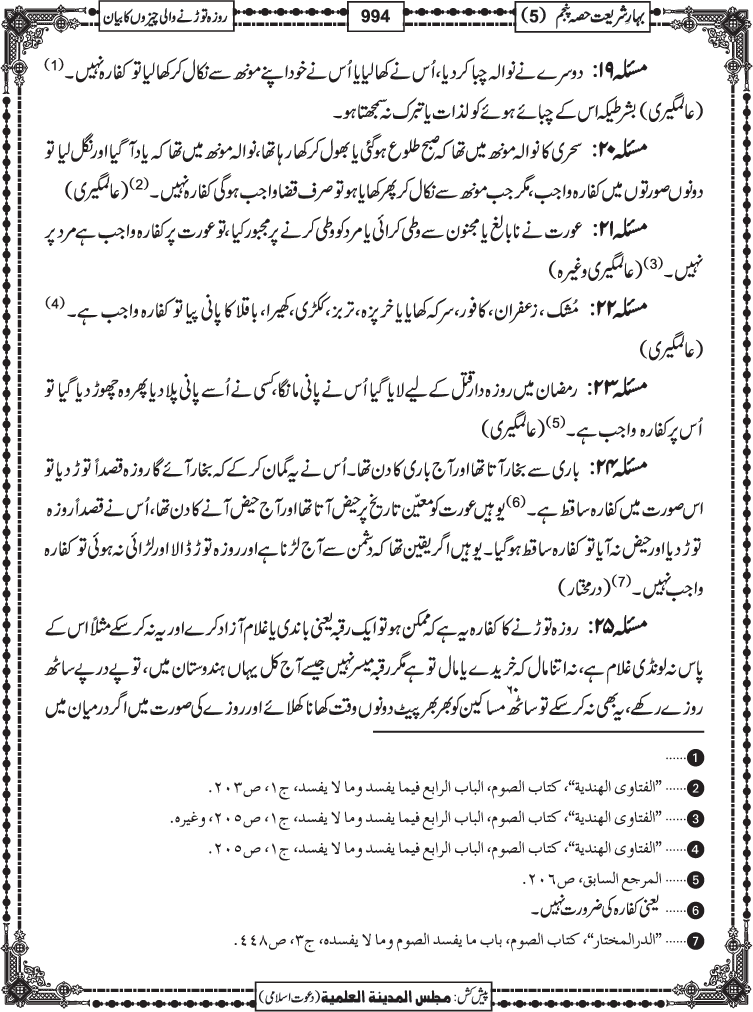 بہارِشریعت حصہ پنجم (5)
994
روزہ توڑنے والی چیزوں کا بیان
مسئلہ ۱۹: دوسرے نے نوالہ چبا کر دیا، اُس نے کھالیا یا اُس نے خود اپنے مونھ سے نکال کر کھالیا تو کفارہ نہیں۔ (1)
(عالمگیری) بشرطیکہ اس کے چبائے ہوئے کو لذات یا تبرک نہ سمجھتا ہو۔
مسئلہ ۲۰: سحری کا نوالہ مونھ میں تھا کہ صبح طلوع ہوگئی یا بھول کر کھا رہا تھا، نوالہ مونھ میں تھا کہ یاد آگیا اور نگل لیا تو
دونوں صورتوں میں کفارہ واجب، مگر جب مونھ سے نکال کر پھر کھایا ہو تو صرف قضا واجب ہوگی کفارہ نہیں۔ (2) (عالمگیری)
مسئلہ ۲۱: عورت نے نابالغ یا مجنون سے وطی کرائی یا مرد کو وطی کرنے پر مجبور کیا، تو عورت پر کفارہ واجب ہے مرد پر
نہیں۔ (3) (عالمگیری وغیرہ)
مسئلہ ۲۲: مُشک، زعفران، کافور، سرکہ کھایا یا خرپزہ، تربز، ککڑی، کھیرا، باقلا کا پانی پیا تو کفارہ واجب ہے۔ (4)
(عالمگیری)
مسئلہ ۲۳: رمضان میں روزہ دار قتل کے لیے لایا گیا اُس نے پانی مانگا، کسی نے اُسے پانی پلا دیا پھر وہ چھوڑ دیا گیا تو
اُس پر کفارہ واجب ہے۔ (5) (عالمگیری)
مسئلہ ۲۴: باری سے بخار آتا تھا اور آج باری کا دن تھا۔ اُس نے یہ گمان کرکے کہ بخار آئے گا روزہ قصداً توڑ دیا تو
اس صورت میں کفارہ ساقط ہے۔ (6) یوہیں عورت کو معیّن تاریخ پر حیض آتا تھا اور آج حیض آنے کا دن تھا، اُس نے قصداً روزہ
توڑ دیا اور حیض نہ آیا تو کفارہ ساقط ہوگیا۔ یوہیں اگر یقین تھا کہ دشمن سے آج لڑنا ہے اور روزہ توڑ ڈالا اور لڑائی نہ ہوئی تو کفارہ
واجب نہیں۔ (7) (درمختار)
مسئلہ ۲۵: روزہ توڑنے کا کفارہ یہ ہے کہ ممکن ہو تو ایک رقبہ یعنی باندی یا غلام آزاد کرے اور یہ نہ کرسکے مثلاً اس کے
پاس نہ لونڈی غلام ہے، نہ اتنا مال کہ خریدے یا مال تو ہے مگر رقبہ میسر نہیں جیسے آج کل یہاں ہندوستان میں، تو پے درپے ساٹھ
روزے رکھے، یہ بھی نہ کر سکے تو ساٹھ۶۰ مساکین کو بھر بھر پیٹ دونوں وقت کھانا کھلائے اور روزے کی صورت میں اگر درمیان میں
1 ......
2 ...... ”الفتاوی الھندیة“، کتاب الصوم، الباب الرابع فیما یفسد وما لا یفسد، ج۱، ص۲۰۳.
3 ...... ”الفتاوی الھندیة“، کتاب الصوم، الباب الرابع فیما یفسد وما لا یفسد، ج۱، ص۲۰۵، وغیرہ.
4 ...... ”الفتاوی الھندیة“، کتاب الصوم، الباب الرابع فیما یفسد وما لا یفسد، ج۱، ص۲۰۵.
5 ...... المرجع السابق، ص۲۰۶.
6 ...... یعنی کفارہ کی ضرورت نہیں۔
7 ...... ”الدرالمختار“، کتاب الصوم، باب ما یفسد الصوم وما لا یفسدہ، ج۳، ص۴۴۸.
پیش کش: مجلس المدینة العلمیة (دعوت اسلامی)